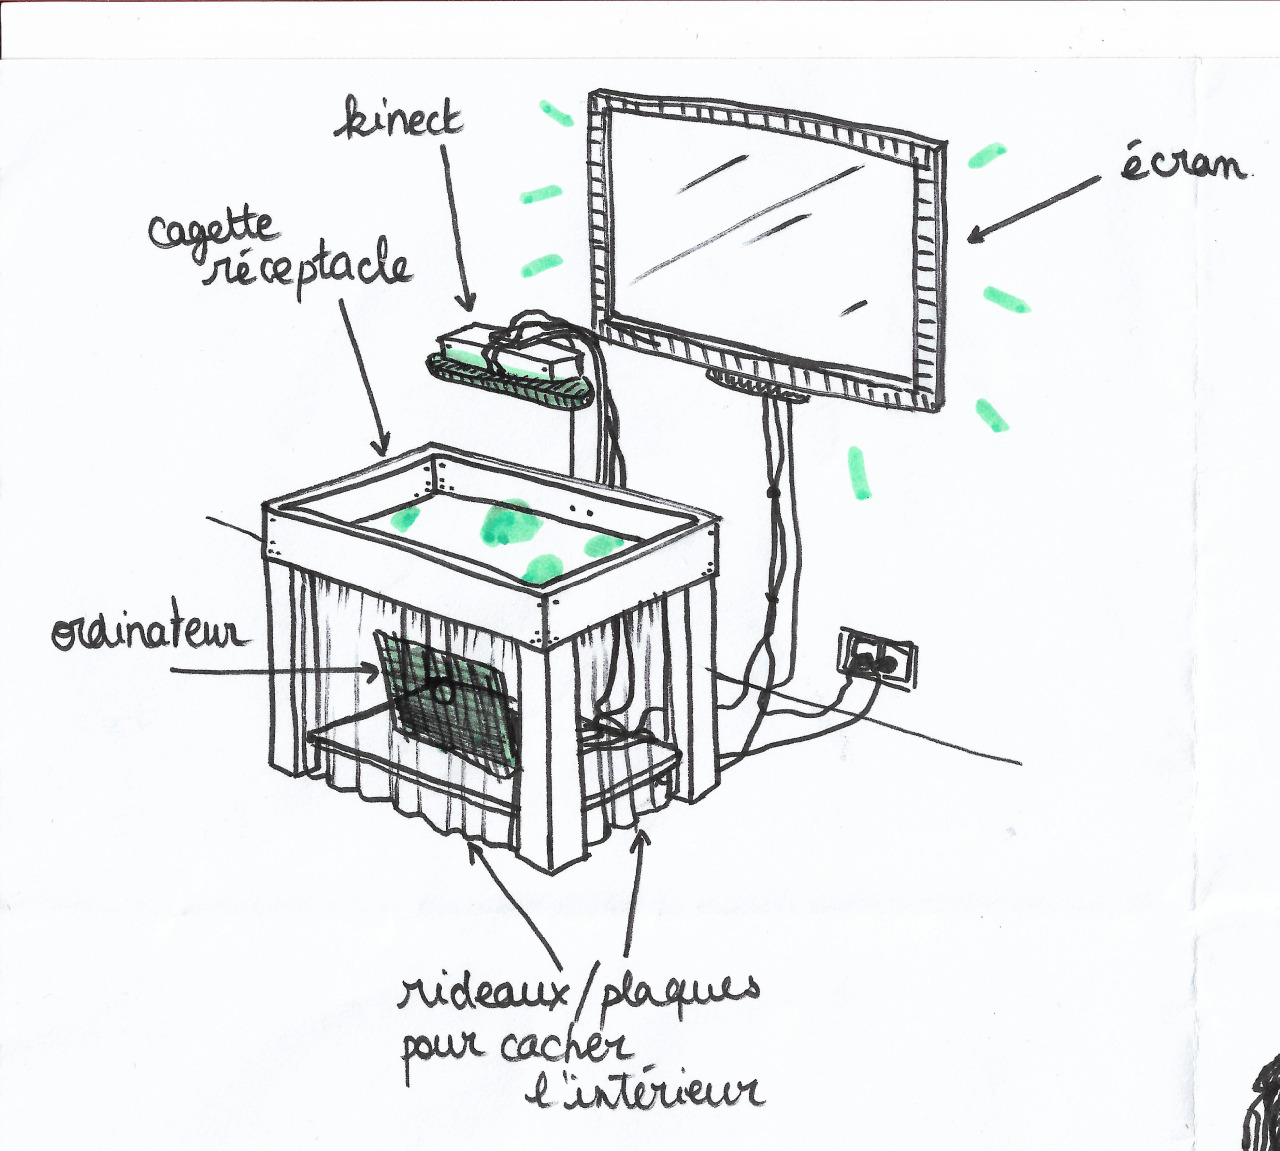 kinect
écran
cagette
réceptacle
ordinateur
rideaux/plaques
pour cacher
l'intérieur